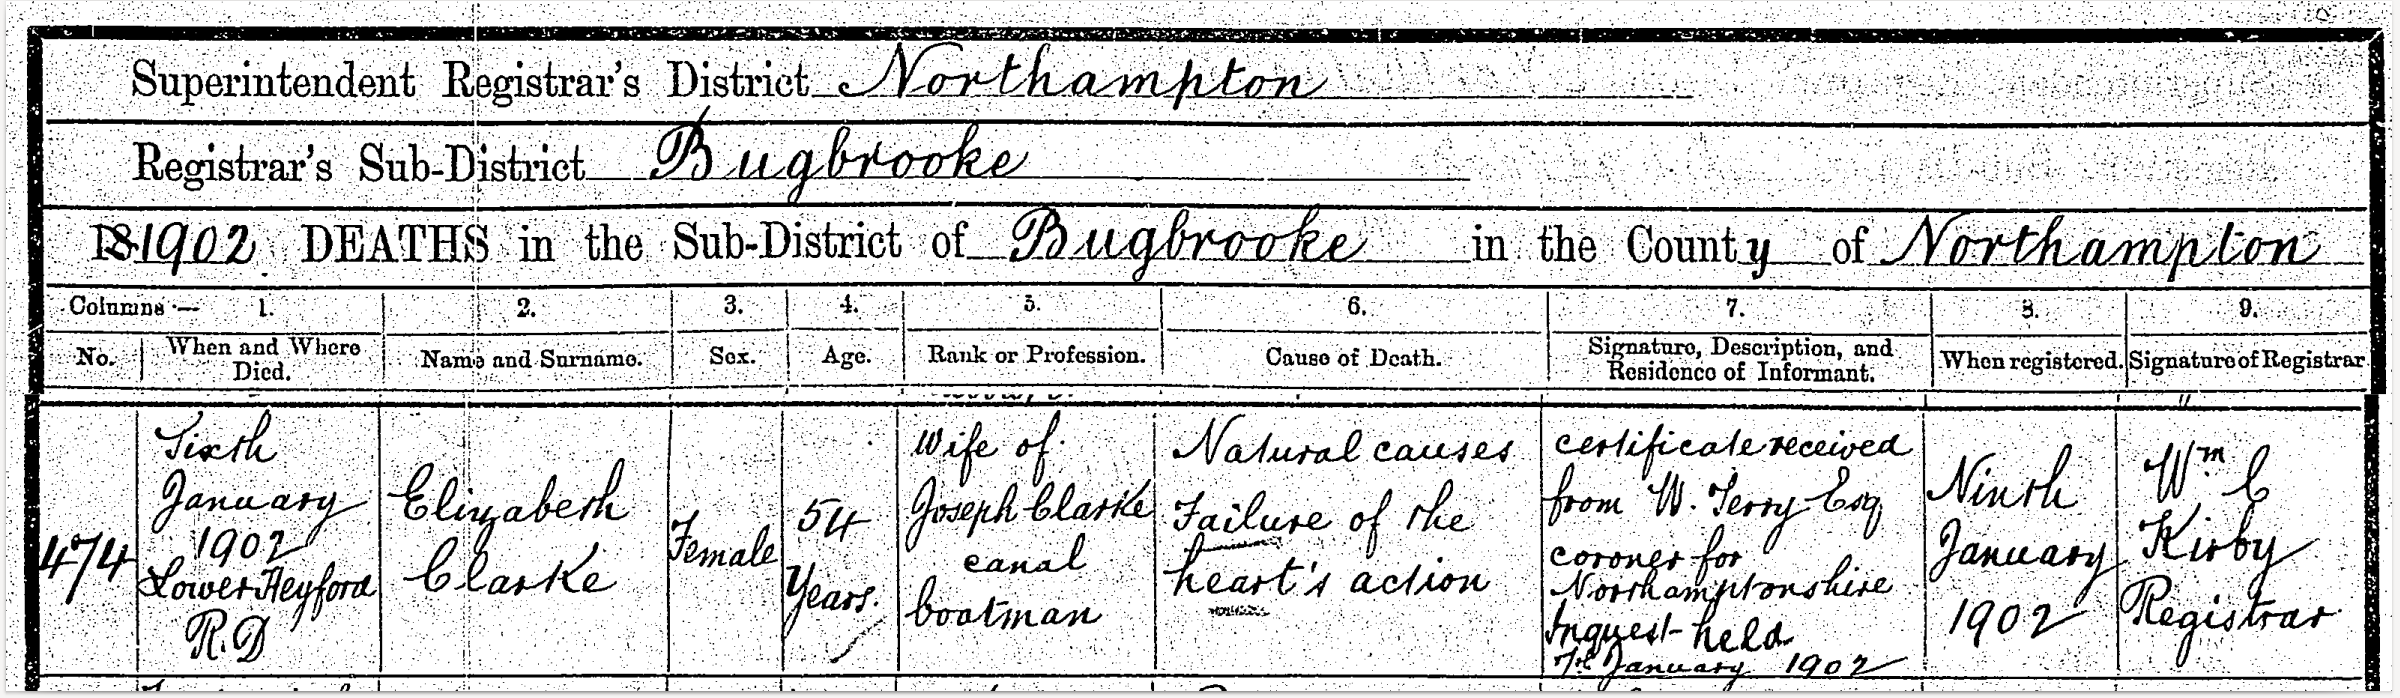 Superintendent Registrar's District Northampton
Registrar's Sub-District Bugbrooke
181902 DEATHS in the Sub-District of Bugbrooke in the County of Northampton
Columns:— 1. 2. 3. 4. 5. 6. 7. 8. 9.
No. When and Where Died. Name and Surname. Sex. Age. Rank or Profession. Cause of Death. Signature, Description, and Residence of Informant. When registered. Signature of Registrar
474
Sixth
January
1902
Lower Heyford
R.D
Elizabeth
Clarke
Female
54
Years.
Wife of
Joseph Clarke
canal
boatman
Natural causes
Failure of the
heart's action
certificate received
from W. Terry Esq
coroner for
Northamptonshire
Inquest held
7th January 1902
Ninth
January
1902
Wm C
Kirby
Registrar